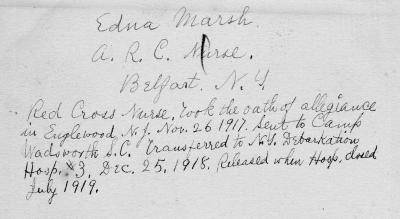 Edna Marsh.
A. R. C. Nurse.
Belfast. N. Y.
Red Cross Nurse. Took the oath of allegiance
in Englewood N.J. Nov. 26 1917. Sent to Camp
Wadsworth S.C. Transferred to N.Y. Debarkation
Hosp. #3, Dec. 25, 1918. Released when Hosp. closed
July 1919.